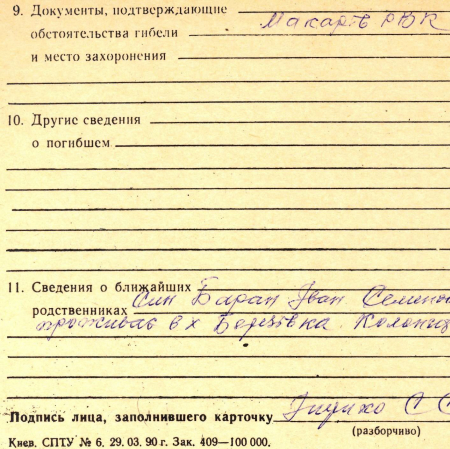 9. Документы, подтверждающие Макарів РВК
обстоятельства гибели
и место захоронения
10. Другие сведения
о погибшем
11. Сведения о ближайших
родственниках Син Баран Іван Семенов
проживає в х Березівка.
Подпись лица, заполнившего карточку С С
(разборчиво)
Киев. СПТУ № 6. 29. 03. 90 г. Зак. 409—100 000.